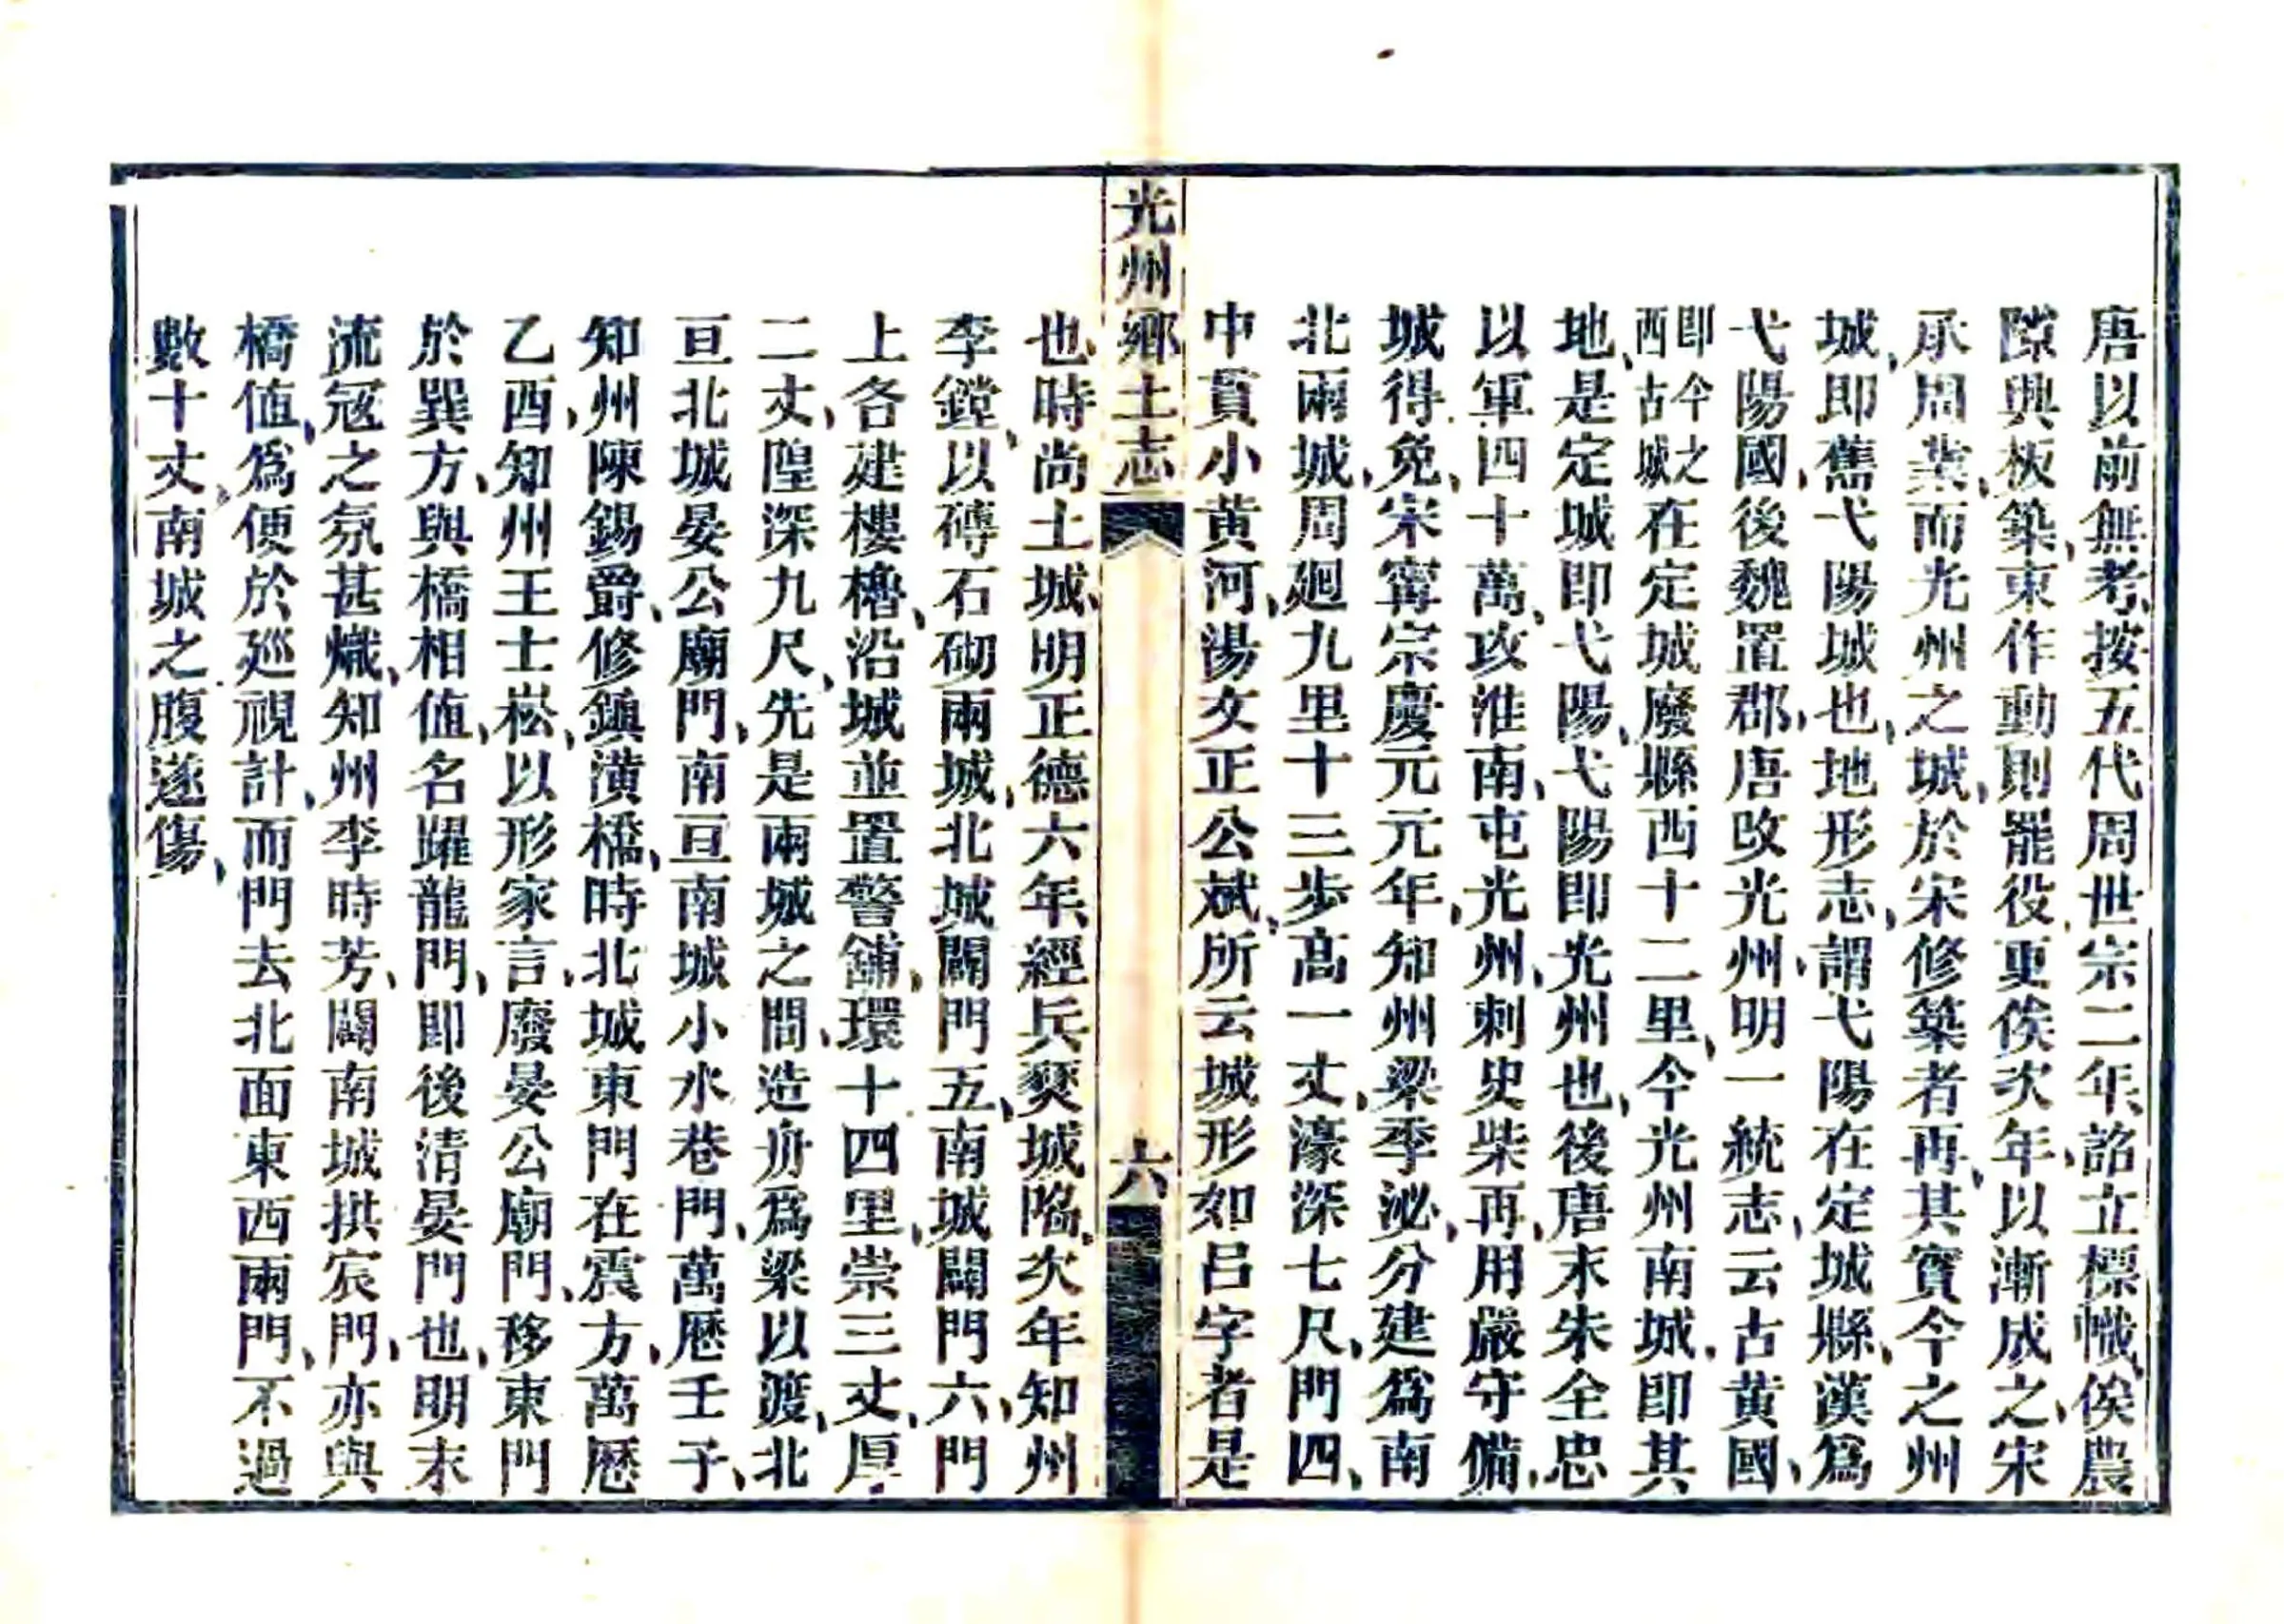 唐以前無考、按五代周世宗二年、詔立標幟、俟農
隙興板築、東作動則罷役、更俟次年、以漸成之、宋
承周業、而光州之城、於宋修築者再、其實今之州
城、即舊弋陽城也、地形志、謂弋陽在定城縣、漢爲
弋陽國、後魏置郡、唐改光州、明一統志、云古黃國、
即今之西古城在定城廢縣西十二里、今光州南城、即其
地、是定城即弋陽、弋陽即光州也、後唐末朱全忠
以軍四十萬、攻淮南、屯光州、刺史柴再、用嚴守備、
城得免、宋寧宗慶元元年、知州梁季泌、分建爲南
北兩城、周廻九里十三步高一丈、濠深七尺、門四、
中貫小黃河、湯文正公斌、所云城形如呂字者是
光州鄉土志
六
也、時尚土城、明正德六年、經兵燹城陷、次年知州
李鏜、以磚石砌兩城、北城闢門五、南城闢門六、門
上各建樓櫓、沿城並置警舖、環十四里、崇三丈、厚
二丈、隍深九尺、先是兩城之間、造舟爲梁以渡、北
亘北城晏公廟門、南亘南城小水巷門、萬歷壬子、
知州陳錫爵、修鎮潢橋、時北城東門在震方、萬歷
乙酉、知州王士崧、以形家言、廢晏公廟門、移東門
於巽方、與橋相値、名躍龍門、即後清晏門也、明末
流寇之氛甚熾、知州李時芳、闢南城拱宸門、亦與
橋値、爲便於廵視計、而門去北面東西兩門、不過
數十丈、南城之腹遂傷、